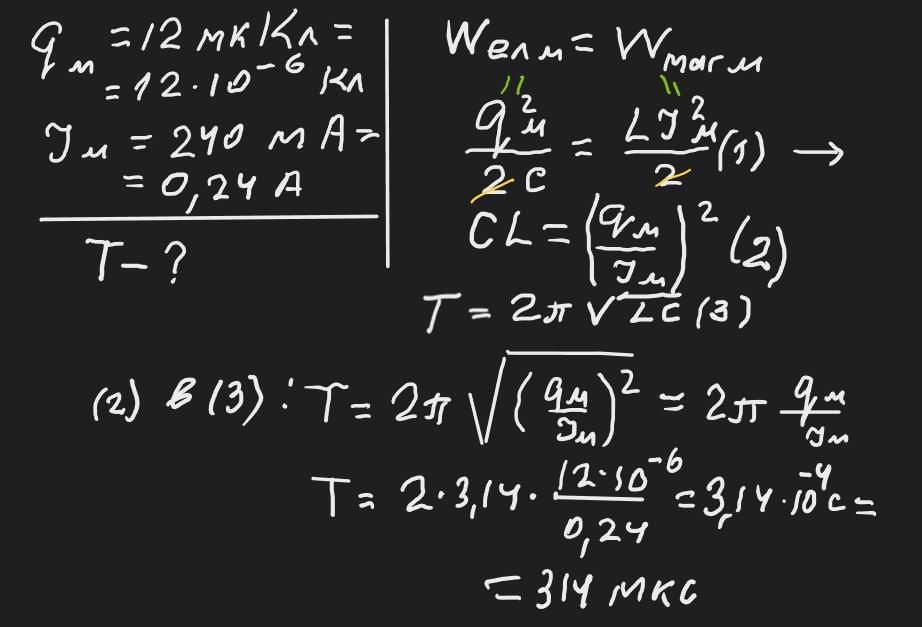 qм = 12 мкКл =
= 12·10⁻⁶ Кл
Iм = 240 мА =
= 0,24 А
T - ?
Wел м = Wмаг м
qм²/2C = LIм²/2 (1) →
CL = (qм/Iм)² (2)
T = 2π √LC (3)
(2) в (3): T = 2π √(qм/Iм)² = 2π qм/Iм
T = 2·3,14· 12·10⁻⁶/0,24 = 3,14·10⁻⁴ с =
= 314 мкс